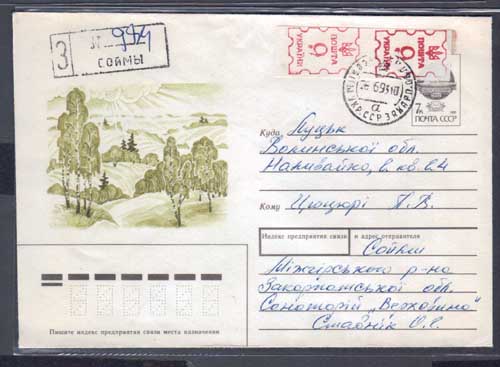 З
974
СОЙМЫ
УКРАЇНИ 9 ПОШТА
УКРАЇНИ 9 ПОШТА
7к
ПОЧТА СССР
УКР.ССР
6.93
а
Куда Луцьк
Волинської обл.
Наливайко,
Кому
Индекс предприятия связи и адрес отправителя
Сойми
Міжгірського р-на
Закарпатської обл.
Санаторій „Верховина"
Стаднік О.С.
Пишите индекс предприятия связи места назначения